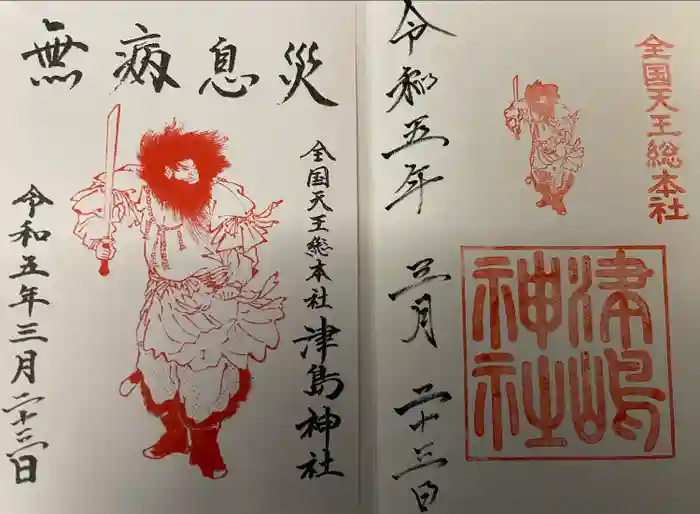 全国天王総本社
津嶋
神社
令和五年 三月 二十三日
無病息災
全国天王総本社 津島神社
令和五年三月二十三日